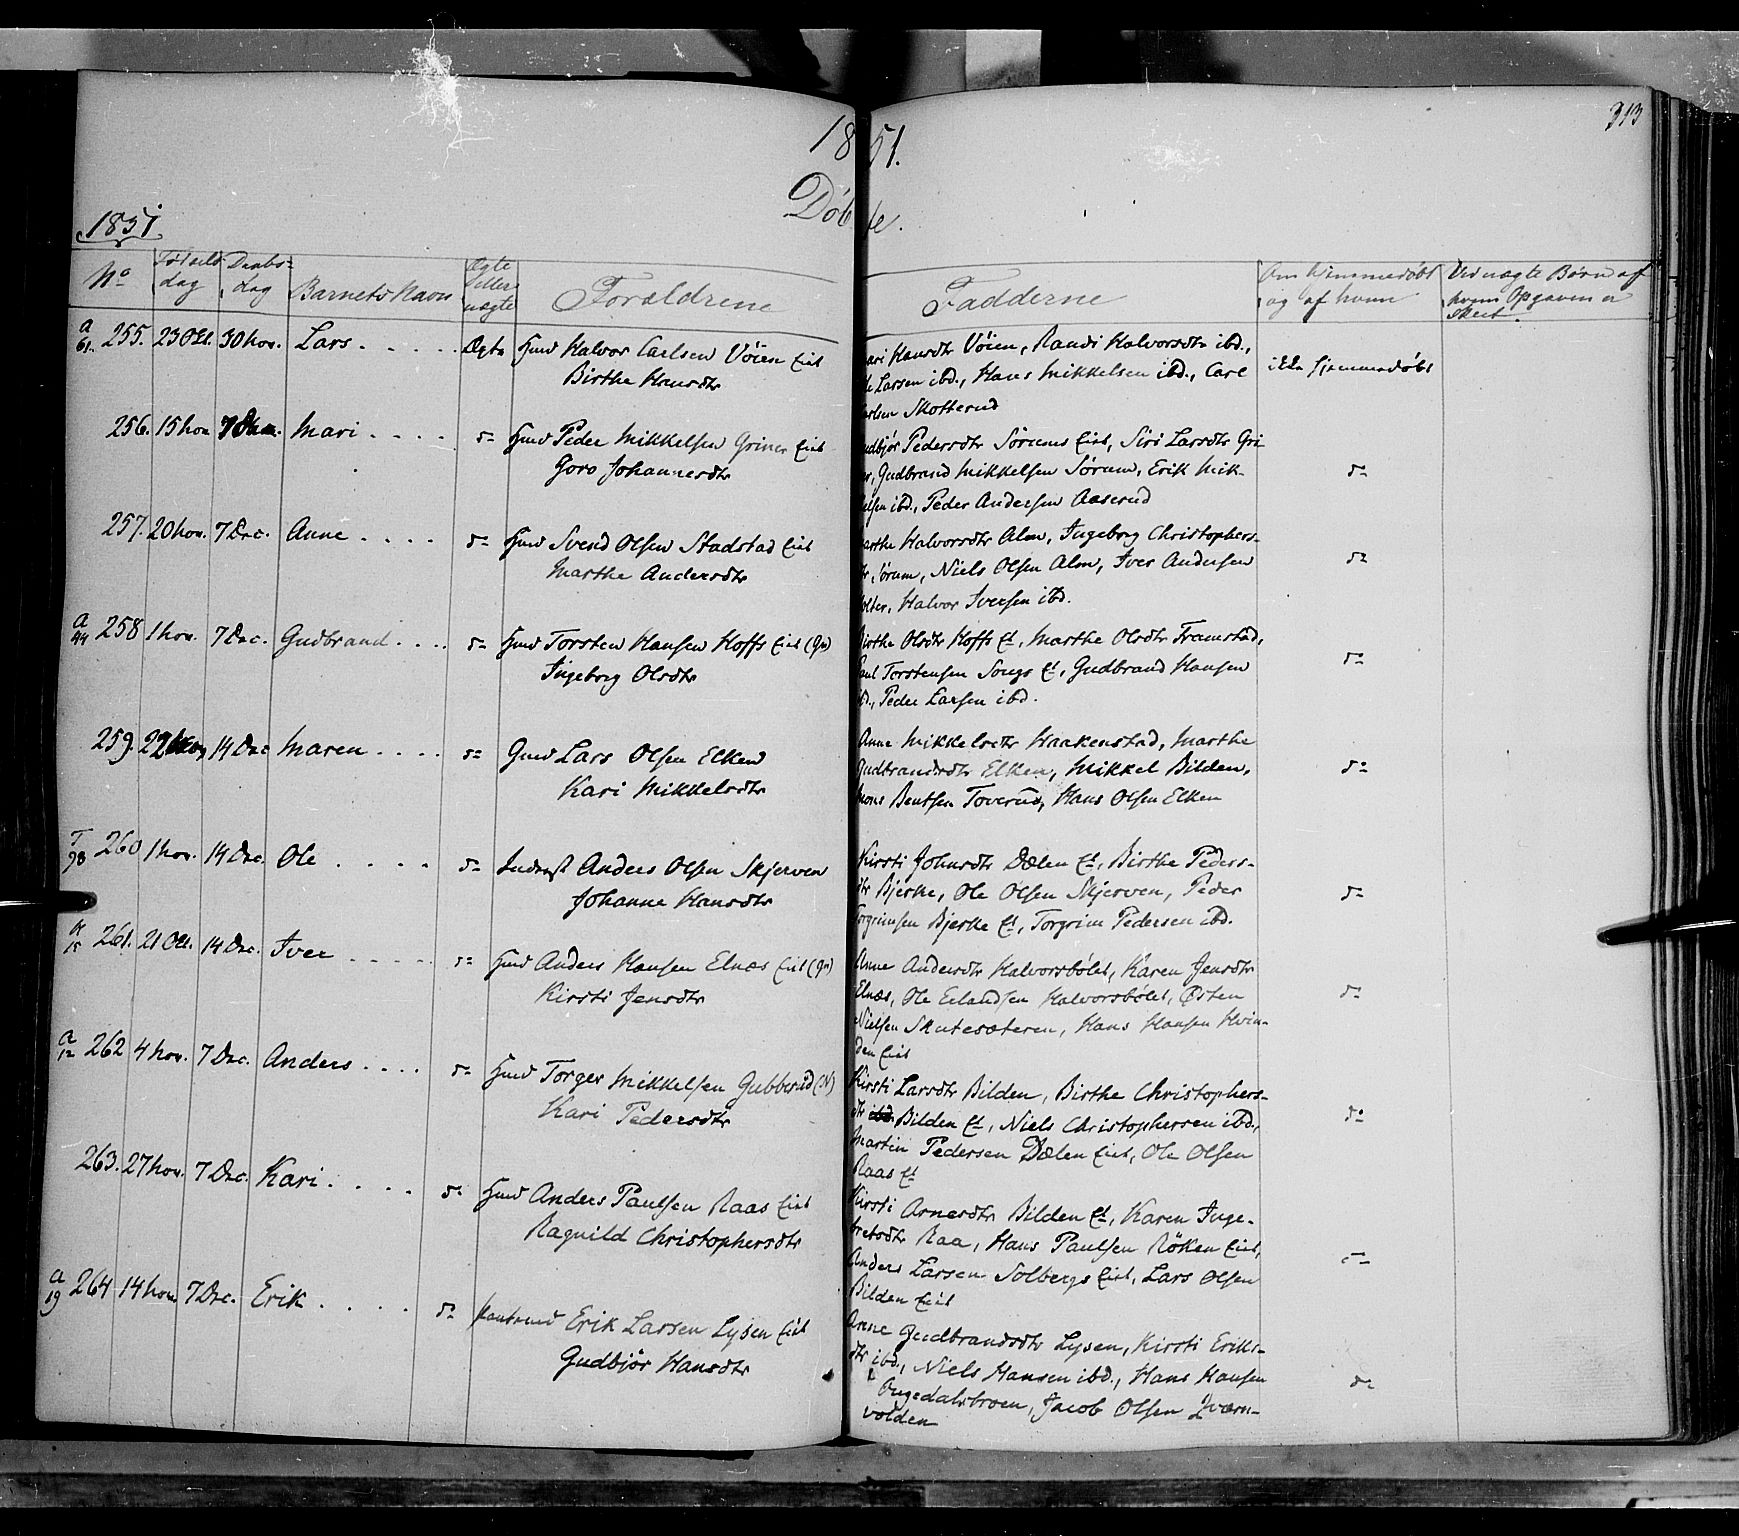 313
1851.
Døbte.
1851
No
Fødsels dag
Daabs- dag
Barnets Navn
Ægte eller uægte
Forældrene
Fadderne
Om hjemmedøbt og af hvem
Ved uægte Børn af hvem Opgaven er skeet.
a 61. 255. 23 Oct. 30 Nov. Lars. Ægte Gmd Halvor Carlsen Vøien Eiet
Birthe Hansdtr
Kari Hansdtr Vøien, Randi Halvorsdtr ibd.,
Ole Larsen ibd., Hans Mikkelsen ibd., Carl
Carlsen Skotterud
ikke hjemmedøbt
256. 15 Nov 7 Dec. Mari do Hmd Peder Mikkelsen Griner Eiet
Goro Johannesdtr
Gudbjør Pedersdtr Sørums Eiet, Siri Larsdtr Gri-
ner, Gudbrand Mikkelsen Sørum, Erik Mik-
kelsen ibd., Peder Andersen Aaserud
do
257. 20 Nov. 7 Dec. Anne do Hmd Svend Olsen Stadstad Eiet
Marthe Andersdtr
Marthe Halvorsdtr Alm, Ingeborg Christophers-
dtr Sørum, Niels Olsen Alm, Iver Andersen
Holter, Halvor Iversen ibd.
do
a 44 258 1 Nov. 7 Dec. Gudbrand do Hmd Torsten Hansen Hoffs Eiet (Gr)
Ingeborg Olsdtr
Birthe Olsdtr Hoffs Et, Marthe Olsdtr Framstad,
Paul Torstensen Sougs Et, Gudbrand Hansen
ibd., Peder Larsen ibd.
do
259. 22 Nov 14 Dec Maren do Gmd Lars Olsen Elken
Kari Mikkelsdtr
Anne Mikkelsdtr Haakenstad, Marthe
Gudbrandsdtr Elken, Mikkel Bilden,
Mons Bentsen Toverud, Hans Olsen Elken
do
T 98 260 1 Nov. 14 Dec. Ole do Inderst Anders Olsen Skjerven
Johanne Hansdtr
Kirsti Johnsdtr Dælen Et, Birthe Peders-
dtr Bjerke, Ole Olsen Skjerven, Peder
Torgrimsen Bjerke Et, Torgrim Pedersen ibd.
do
a 15 261. 21 Oct. 14 Dec. Iver do Hmd Anders Hansen Elnæs Eiet (Gr)
Kirsti Jensdtr
Anne Andersdtr Halvorsbølet, Karen Jensdtr
Elnæs, Ole Erlandsen Halvorsbølet, Østen
Nielsen Skutesæteren, Hans Hansen Hvin-
den Eiet
do
a 12 262 4 Nov. 7 Dec. Anders do Hmd Torger Mikkelsen Gubberud (N)
Kari Pedersdtr
Kirsti Larsdtr Bilden, Birthe Christophers-
dtr Bilden Et, Niels Christophersen ibd.,
Martin Pedersen Dælen Eiet, Ole Olsen
Raas Et
do
263. 27 Nov. 7 Dec. Kari do Hmd Anders Paulsen Raas Eiet
Ragnild Christophersdtr
Kirsti Arnesdtr Bilden Et, Karen Inge-
bretsdtr Raa, Hans Paulsen Røken Eiet,
Anders Larsen Solbergs Eiet, Lars Olsen
Bilden Eiet
do
a 19 264 14 Nov. 7 Dec. Erik do Kantemd Erik Larsen Lysen Eiet
Gudbjør Hansdtr
Anne Gudbrandsdtr Lysen, Kirsti Eriks-
dtr ibd., Niels Hansen ibd., Hans Hansen
Ongedalsbroen, Jacob Olsen Qværn-
volden
do